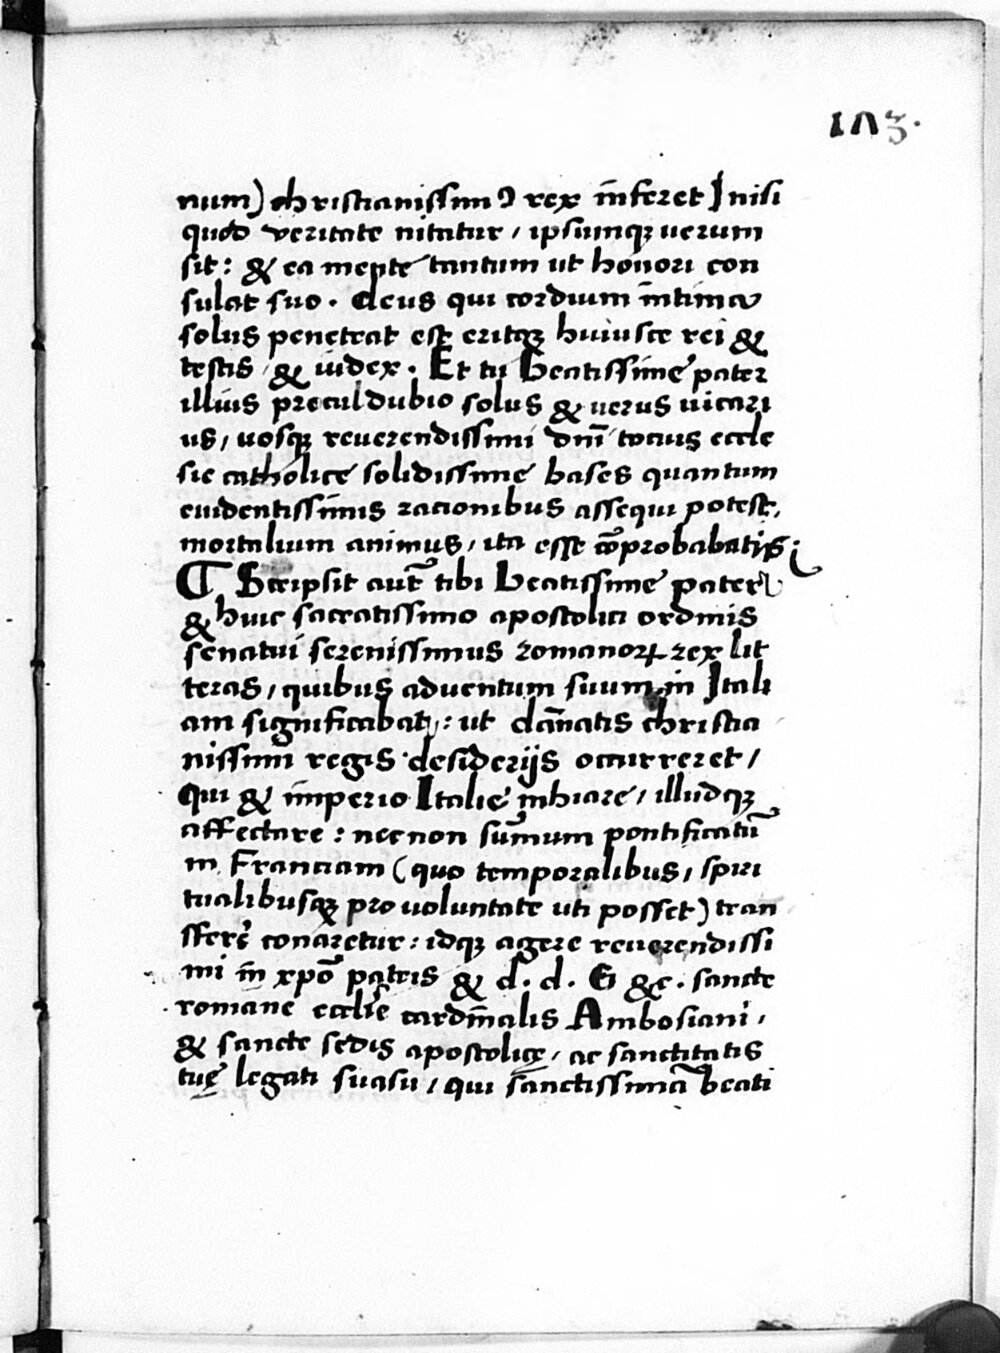 103.
num) christianissimꝯ rex īnferet Jnisi
quod veritate nitatur / ipsumqꝫ uerum
sit: & ea mente tantum ut honori con
sulat suo. deus qui cordium īntima
solus penetrat est eritqꝫ huiusce rei &
testis / & iudex. Et tu beatissime pater
illius proculdubio solus & uerus uicari
us / uosqꝫ reuerendissimi dn̄i tocius eccle
sie catholice solidissime bases quantum
euidentissimis racionibus assequi potest,
mortalium animus, ita esse cōprobabatis:
¶ Scripsit aut̄ tibi beatissime pater
& huic sacratissimo apostolici ordinis
senatui serenissimus romanoꝝ rex lit
teras, quibus aduentum suum in Itali
am significabat: ut dānatis christia
nissimi regis desiderijs occurreret /
qui & imperio Italie inhiare / illudqꝫ
affectare: necnon sūmum pontificatū
in Franciam (quo temporalibus, spiri
tualibusqꝫ pro uoluntate uti posset) tran
sferē conaretur: idqꝫ agere reuerendissi
mi īn xpō patris & d. d. G &c. sancte
romane ecclīe cardīnalis Ambosiani,
& sancte sedis apostolicę, ac sanctitatis
tuę legati suasu / qui sanctissimā beati